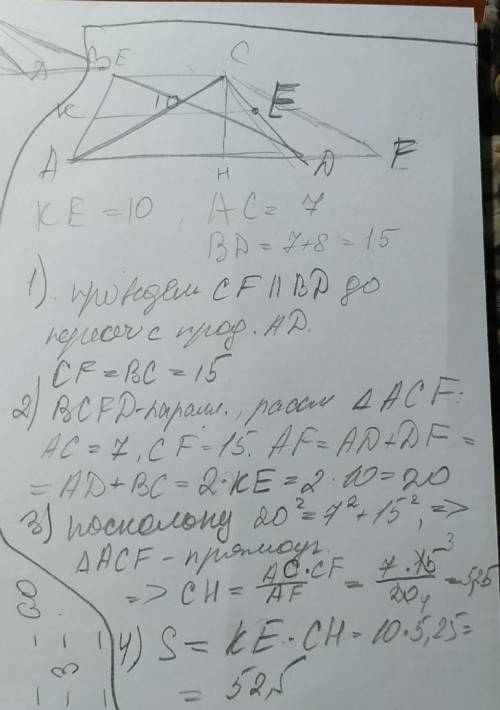 B E C
K 10 E
A H D F
KE = 10 , AC = 7
BD = 7+8 = 15
1) проведём CF || BD до
пересеч с прод. AD.
CF = BC = 15
2) BCFD-паралл., рассм △ACF:
AC = 7, CF = 15. AF = AD + DF =
= AD + BC = 2·KE = 2·10 = 20
3) поскольку 20² = 7² + 15², =>
△ACF - прямоуг.
=> CH = AC·CF / AF = 7·15 3 / 20 4 = 5,25
4) S = KE·CH = 10·5,25 =
= 52,5